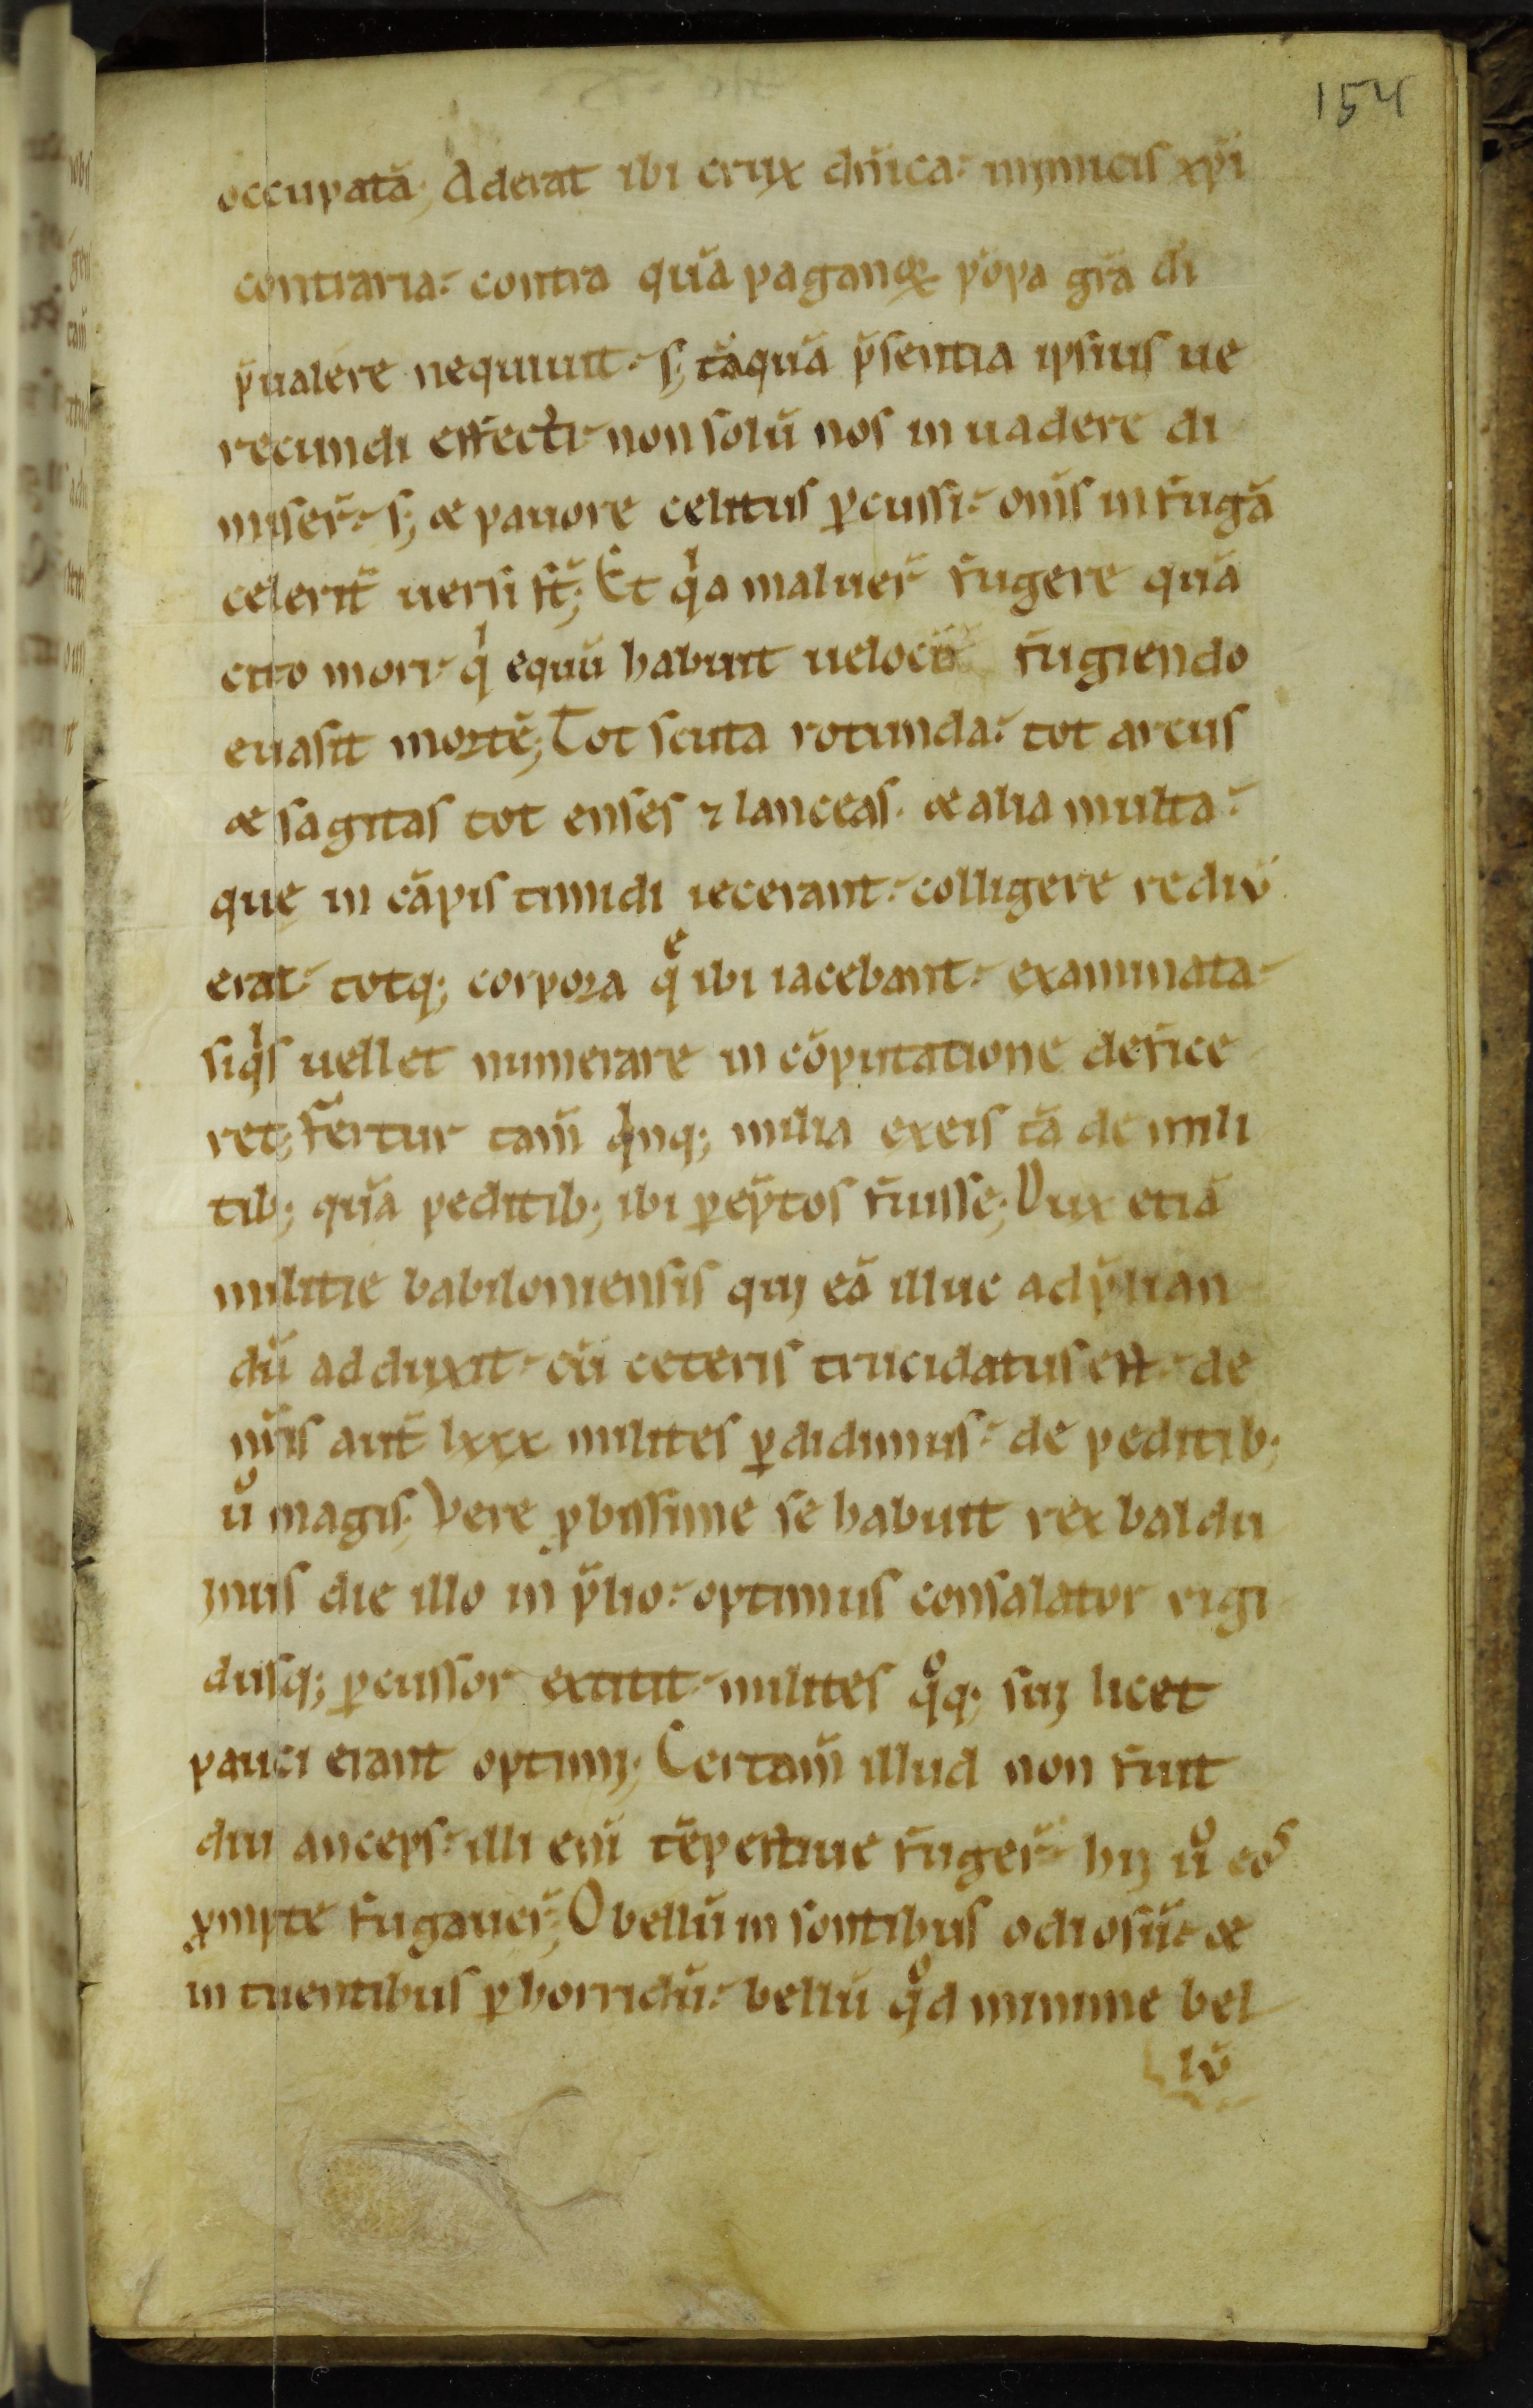 154
occupatā; Aderat ibi crux dn̄ica inimicis xp̄i
contraria contra quā paganoꝝ pōpa grā di
p̄ualere nequiuit s; tāquā p̄sentia ipsius ue
recundi effecti non solū nos inuadere di
miser̄ s; & pauore celitus ꝑcussi om̄s in fugā
celerit̄ uersi st̄; Et qͥa maluer̄ fugere quā
cito mori qͥ equū habuit uelocē fugiendo
euasit mortē; Tot scuta rotunda tot arcus
& sagitas tot enses ⁊ lanceas & alia multa
que in cāpis timidi iecerant colligere rediū
erat totq; corpora qͤ ibi iacebant exanimata
siqͥs uellet numerare in cōputatione defice
ret; Fertur tam̄ qͥnq; milia ex eis tā de mili
tib; quā peditib; ibi ꝑēptos fuisse; Dux etiā
militie babiloniensis qui eā illuc ad p̄lian
dū adduxit cū ceteris trucidatus est de
nr̄is aut̄ lxxx milites ꝑdidimus de peditib;
uͦ magis; Vere ꝓbissime se habuit rex baldu
inus die illo in p̄lio optimus consalator rigi
dusq; ꝑcussor extitit milites qͦq; sui licet
pauci erant optimi; Certam̄ illud non fuit
diu anceps illi eni̅ tēpestiue fuger̄ hij uͦ eos
ꝓmpte fugauer̄; O bellū insontibus odiosū &
intuentibus ꝑhorridū bellū qͦd minime bel
lū